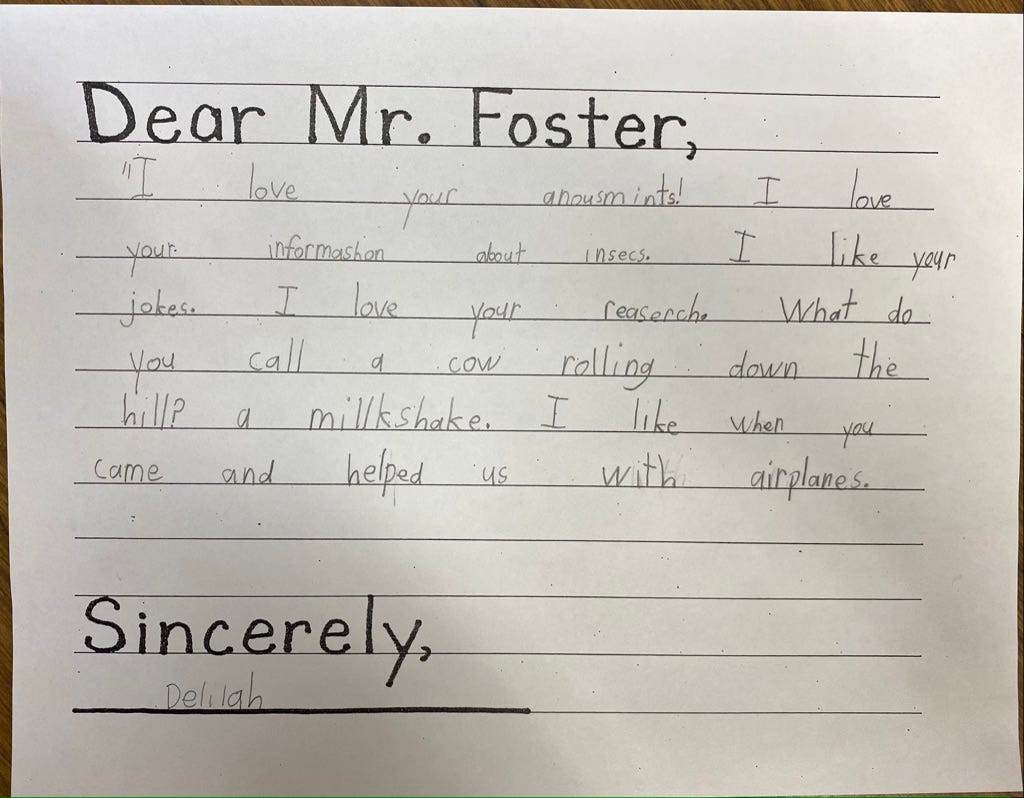 Dear Mr. Foster,
"I love your anousmints! I love
your informashon about insecs. I like your
jokes. I love your reaserch. What do
you call a cow rolling down the
hill? a millkshake. I like when you
came and helped us with airplanes.
Sincerely,
Delilah